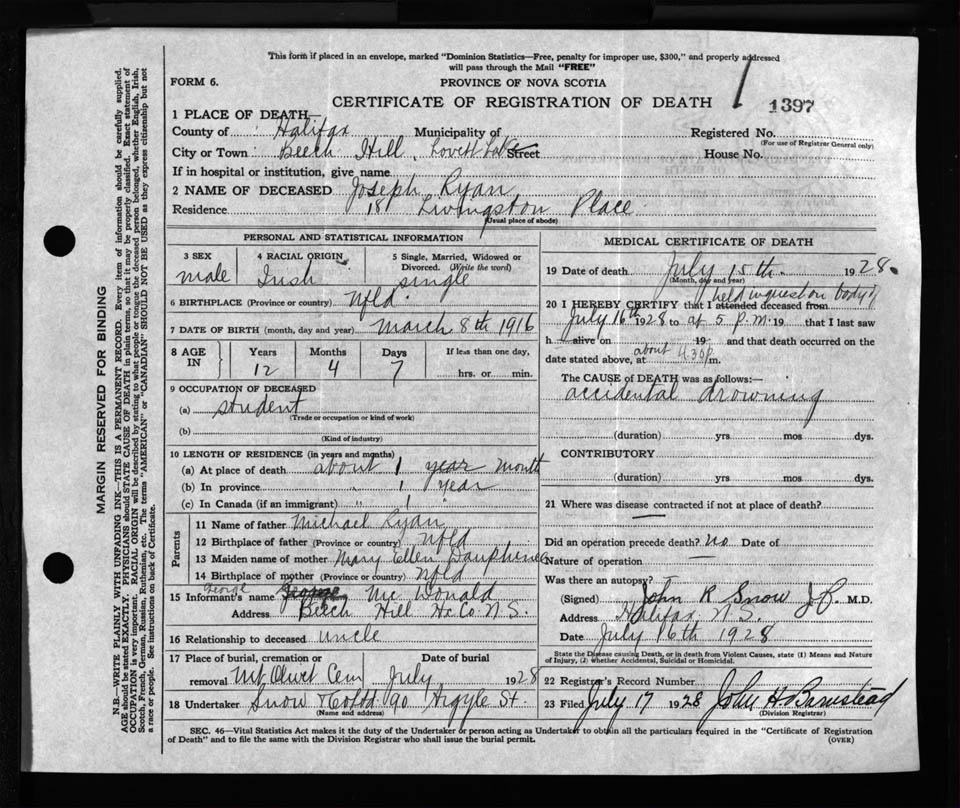 This form if placed in an envelope, marked "Dominion Statistics—Free, penalty for improper use, $300," and properly addressed
will pass through the Mail "FREE"
FORM 6.
PROVINCE OF NOVA SCOTIA
CERTIFICATE OF REGISTRATION OF DEATH
1397
1 PLACE OF DEATH—
County of Halifax Municipality of
Registered No.
(For use of Registrar General only)
City or Town Beech Hill, Lovett Lake Street
House No.
If in hospital or institution, give name
2 NAME OF DECEASED Joseph Ryan
Residence 18 Livingston Place
(Usual place of abode)
PERSONAL AND STATISTICAL INFORMATION
3 SEX male
4 RACIAL ORIGIN Irish
5 Single, Married, Widowed or Divorced. (Write the word) single
6 BIRTHPLACE (Province or country) Nfld.
7 DATE OF BIRTH (month, day and year) March 8th 1916
8 AGE IN
Years 12
Months 4
Days 7
If less than one day,
hrs. or min.
9 OCCUPATION OF DECEASED
(a) student
(Trade or occupation or kind of work)
(b)
(Kind of industry)
10 LENGTH OF RESIDENCE (in years and months)
(a) At place of death about 1 year month
(b) In province " 1 year
(c) In Canada (if an immigrant) " 1 "
Parents
11 Name of father Michael Ryan
12 Birthplace of father (Province or country) Nfld
13 Maiden name of mother Mary Ellen
14 Birthplace of mother (Province or country) Nfld
15 Informant's name George Mc Donald
Address Beech Hill Hx Co. N.S.
16 Relationship to deceased uncle
17 Place of burial, cremation or removal Mt Olivet Cem
Date of burial July 1928
18 Undertaker Snow & Co Ltd 90 Argyle St.
(Name and address)
MEDICAL CERTIFICATE OF DEATH
19 Date of death July 15th. 1928.
(Month, day and year)
held inquest on body of
20 I HEREBY CERTIFY that I attended deceased from
July 16th 1928 to at 5 p.m. 19 that I last saw
h alive on 19 and that death occurred on the
date stated above, at about 4.30 p m.
The CAUSE of DEATH was as follows:—
accidental drowning
(duration) yrs mos dys.
CONTRIBUTORY
(duration) yrs mos dys.
21 Where was disease contracted if not at place of death?
Did an operation precede death? no Date of
Nature of operation
Was there an autopsy?
(Signed) John R Snow J.P. M.D.
Address Halifax N.S.
Date July 16th 1928
State the Disease causing Death, or in death from Violent Causes, state (1) Means and Nature
of Injury, (2) whether Accidental, Suicidal or Homicidal.
22 Registrar's Record Number
23 Filed July 17 1928 John H. Barnstead
(Division Registrar)
SEC. 46—Vital Statistics Act makes it the duty of the Undertaker or person acting as Undertaker to obtain all the particulars required in the "Certificate of Registration
of Death" and to file the same with the Division Registrar who shall issue the burial permit.
(OVER)
MARGIN RESERVED FOR BINDING
N.B.—WRITE PLAINLY WITH UNFADING INK—THIS IS A PERMANENT RECORD. Every item of information should be carefully supplied.
AGE should be stated EXACTLY. PHYSICIANS should STATE CAUSE OF DEATH in plain terms, so that it may be properly classified. Exact statement of
OCCUPATION is very important. RACIAL ORIGIN will be described by stating to what people or tongue the deceased person belonged, whether English, Irish,
Scotch, French, German, Russian, Ruthenian, etc. The terms "AMERICAN" or "CANADIAN" SHOULD NOT BE USED as they express citizenship but not
a race or people. See instructions on back of Certificate.